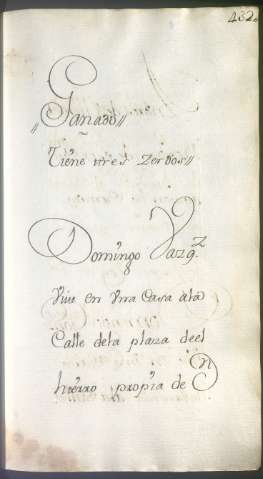 482
Ganado
Tiene tres Zerdos
Domingo Vazqz
Vive en Vna Casa ala
Calle dela plaza deel
hierro propia de Dn